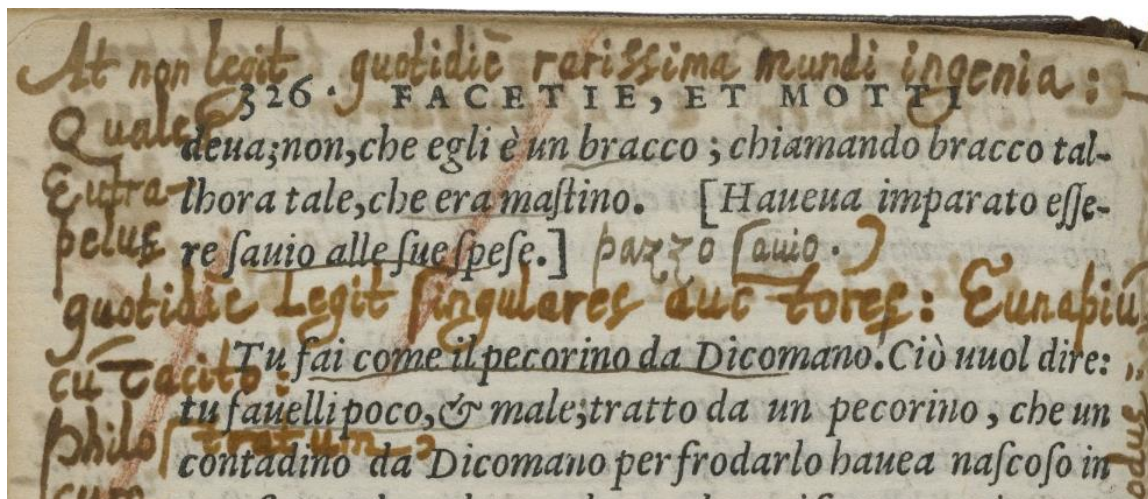 At non legit quotidiè rarissima mundi ingenia:
326. FACETIE, ET MOTTI
Quales
deua; non, che egli è un bracco; chiamando bracco tal-
Eutra-
lhora tale, che era maſtino. [Haueua imparato eſſe-
pelus
re ſauio alle ſue ſpeſe.] pazzo ſauio.
quotidiè Legit ſingulares auctores: Eunapiū
Tu fai come il pecorino da Dicomano. Ciò uuol dire:
cū Tacito:
tu fauelli poco, & male; tratto da un pecorino, che un
philoſtratum
contadino da Dicomano per frodarlo hauea naſcoſo in
cum